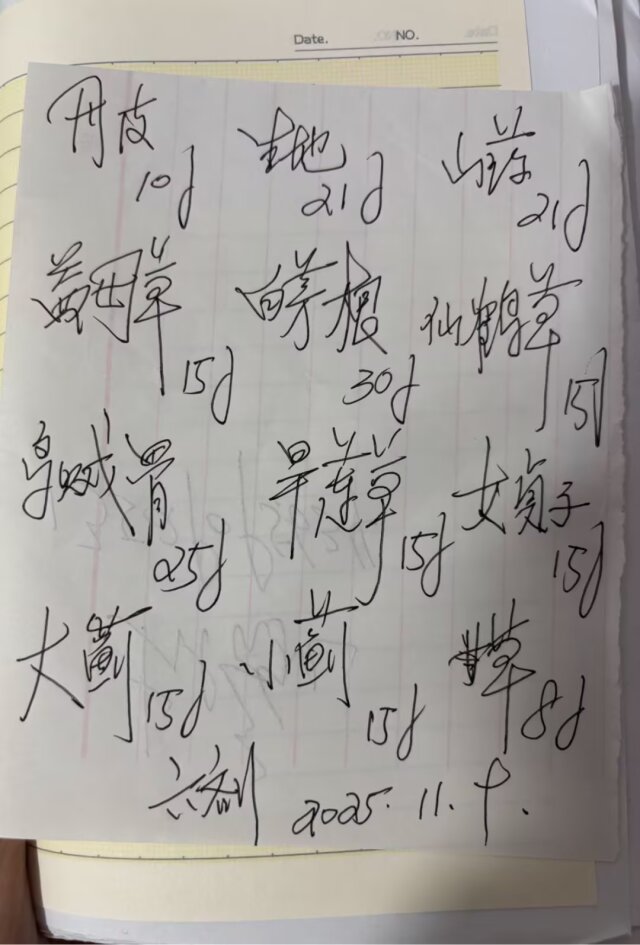 Date. NO.
丹皮 生地 山药
10g 21g 21g
益母草 白茅根 仙鹤草
15g 30g 15g
乌贼骨 旱莲草 女贞子
25g 15g 15g
大蓟 小蓟 甘草
15g 15g 8g
六剂 2025.11.